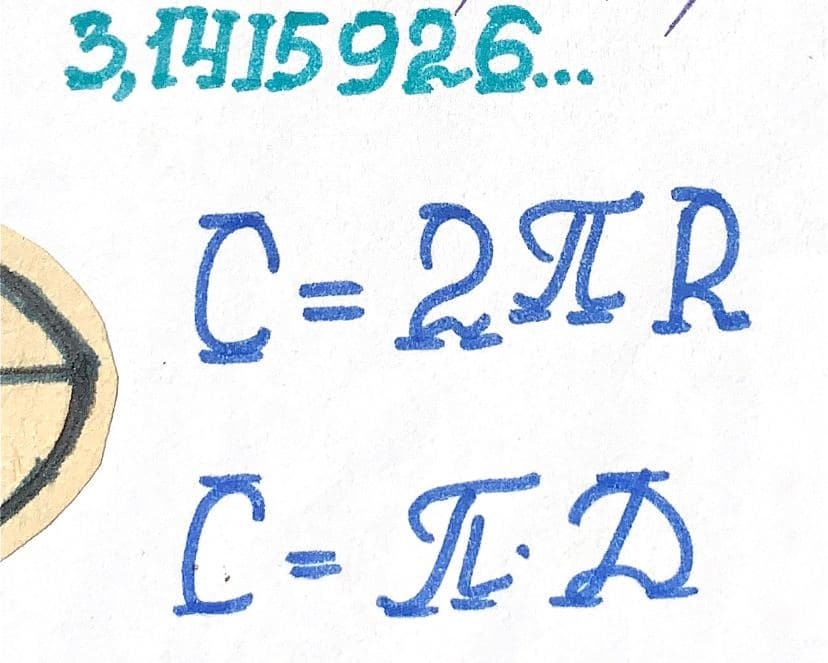 3,1415926...
C = 2πR
C = π · D